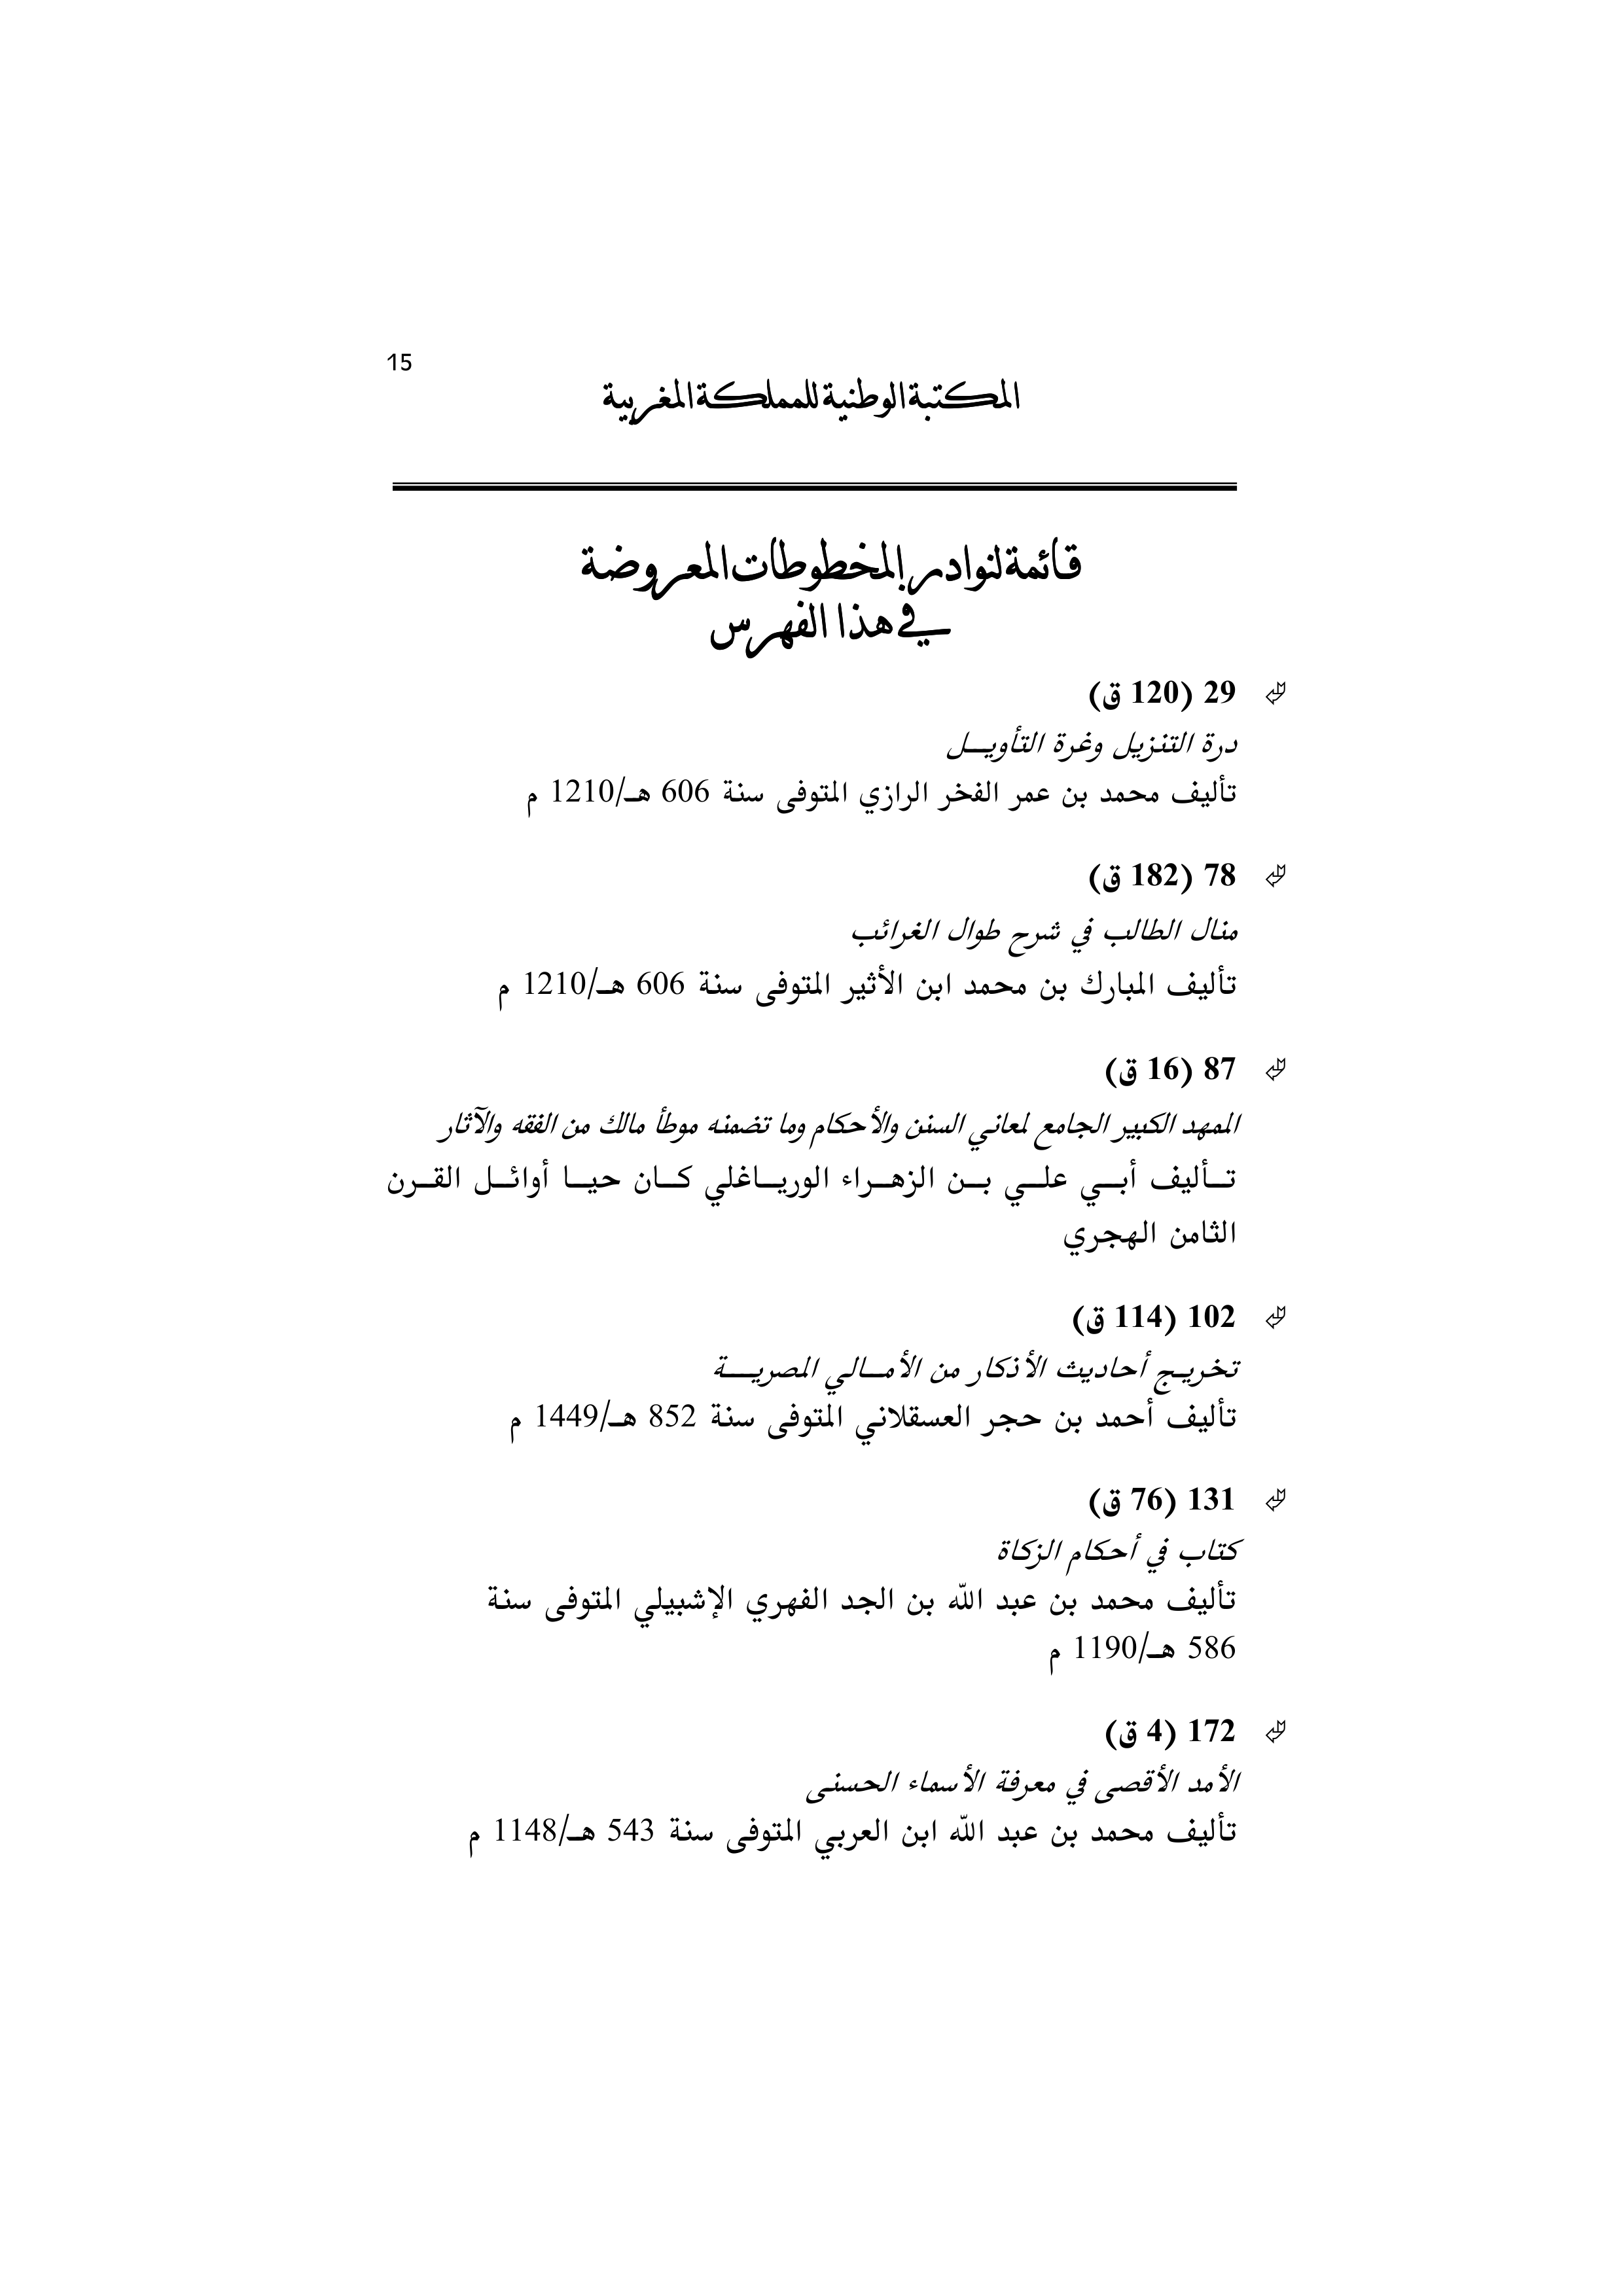 15
المكتبة الوطنية للمملكة المغربية
قائمة لنوادر المخطوطات المعروضة
في هذا الفهرس
29 (120 ق)
درة التنزيل وغرة التأويل
تأليف محمد بن عمر الفخر الرازي المتوفى سنة 606 هـ/1210 م
78 (182 ق)
منال الطالب في شرح طوال الغرائب
تأليف المبارك بن محمد ابن الأثير المتوفى سنة 606 هـ/1210 م
87 (16 ق)
الممهد الكبير الجامع لمعاني السنن والأحكام وما تضمنه موطأ مالك من الفقه والآثار
تأليف أبي علي بن الزهراء الورياغلي كان حيا أوائل القرن
الثامن الهجري
102 (114 ق)
تخريج أحاديث الأذكار من الأمالي المصرية
تأليف أحمد بن حجر العسقلاني المتوفى سنة 852 هـ/1449 م
131 (76 ق)
كتاب في أحكام الزكاة
تأليف محمد بن عبد الله بن الجد الفهري الإشبيلي المتوفى سنة
586 هـ/1190 م
172 (4 ق)
الأمد الأقصى في معرفة الأسماء الحسنى
تأليف محمد بن عبد الله ابن العربي المتوفى سنة 543 هـ/1148 م